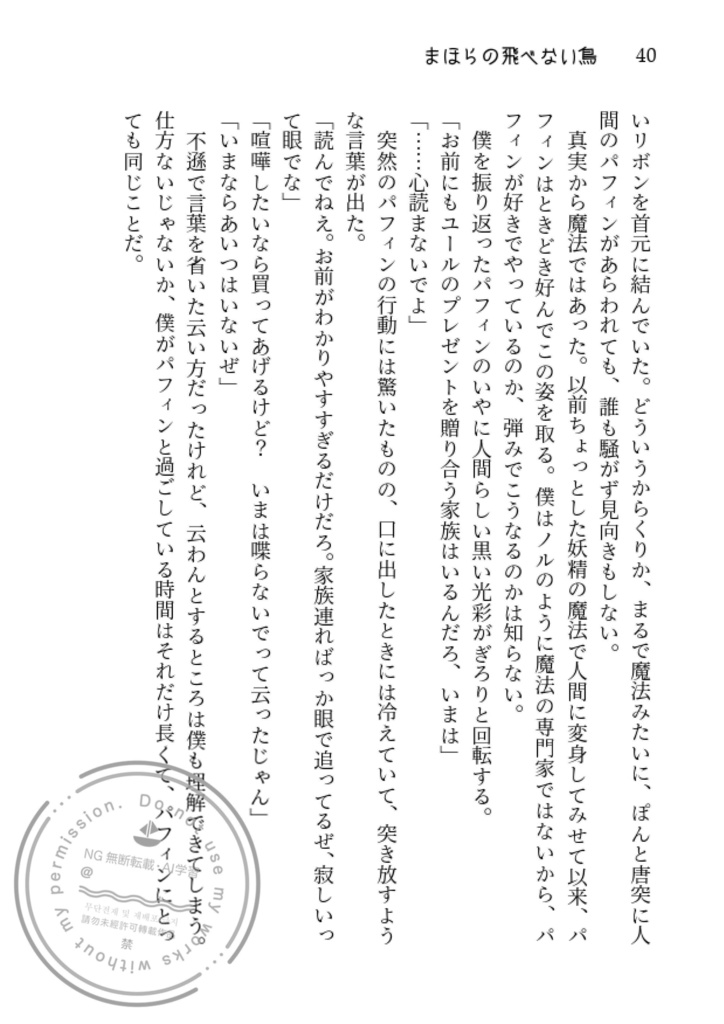 まほらの飛べない鳥 40
いリボンを首元に結んでいた。どういうからくりか、まるで魔法みたいに、ぽんと唐突に人
間のパフィンがあらわれても、誰も騒がず見向きもしない。
真実から魔法ではあった。以前ちょっとした妖精の魔法で人間に変身してみせて以来、パ
フィンはときどき好んでこの姿を取る。僕はノルのように魔法の専門家ではないから、パ
フィンが好きでやっているのか、弾みでこうなるのかは知らない。
僕を振り返ったパフィンのいやに人間らしい黒い光彩がぎろりと回転する。
「お前にもユールのプレゼントを贈り合う家族はいるんだろ、いまは」
「……心読まないでよ」
突然のパフィンの行動には驚いたものの、口に出したときには冷えていて、突き放すよう
な言葉が出た。
「読んでねえ。お前がわかりやすすぎるだけだろ。家族連ればっか眼で追ってるぜ、寂しいっ
て眼でな」
「喧嘩したいなら買ってあげるけど？　いまは喋らないでって云ったじゃん」
「いまならあいつはいないぜ」
不遜で言葉を省いた云い方だったけれど、云わんとするところは僕も理解できてしまう。
仕方ないじゃないか、僕がパフィンと過ごしている時間はそれだけ長くて、パフィンにとっ
ても同じことだ。
Do not use my works without my permission.
NG 無断転載・AI学習
@
무단전재 및 재배포 금지
請勿未經許可轉載
禁